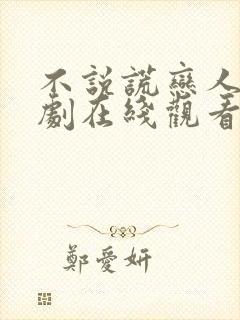 不說謊戀人
劇在綫觀看
鄭愛妍